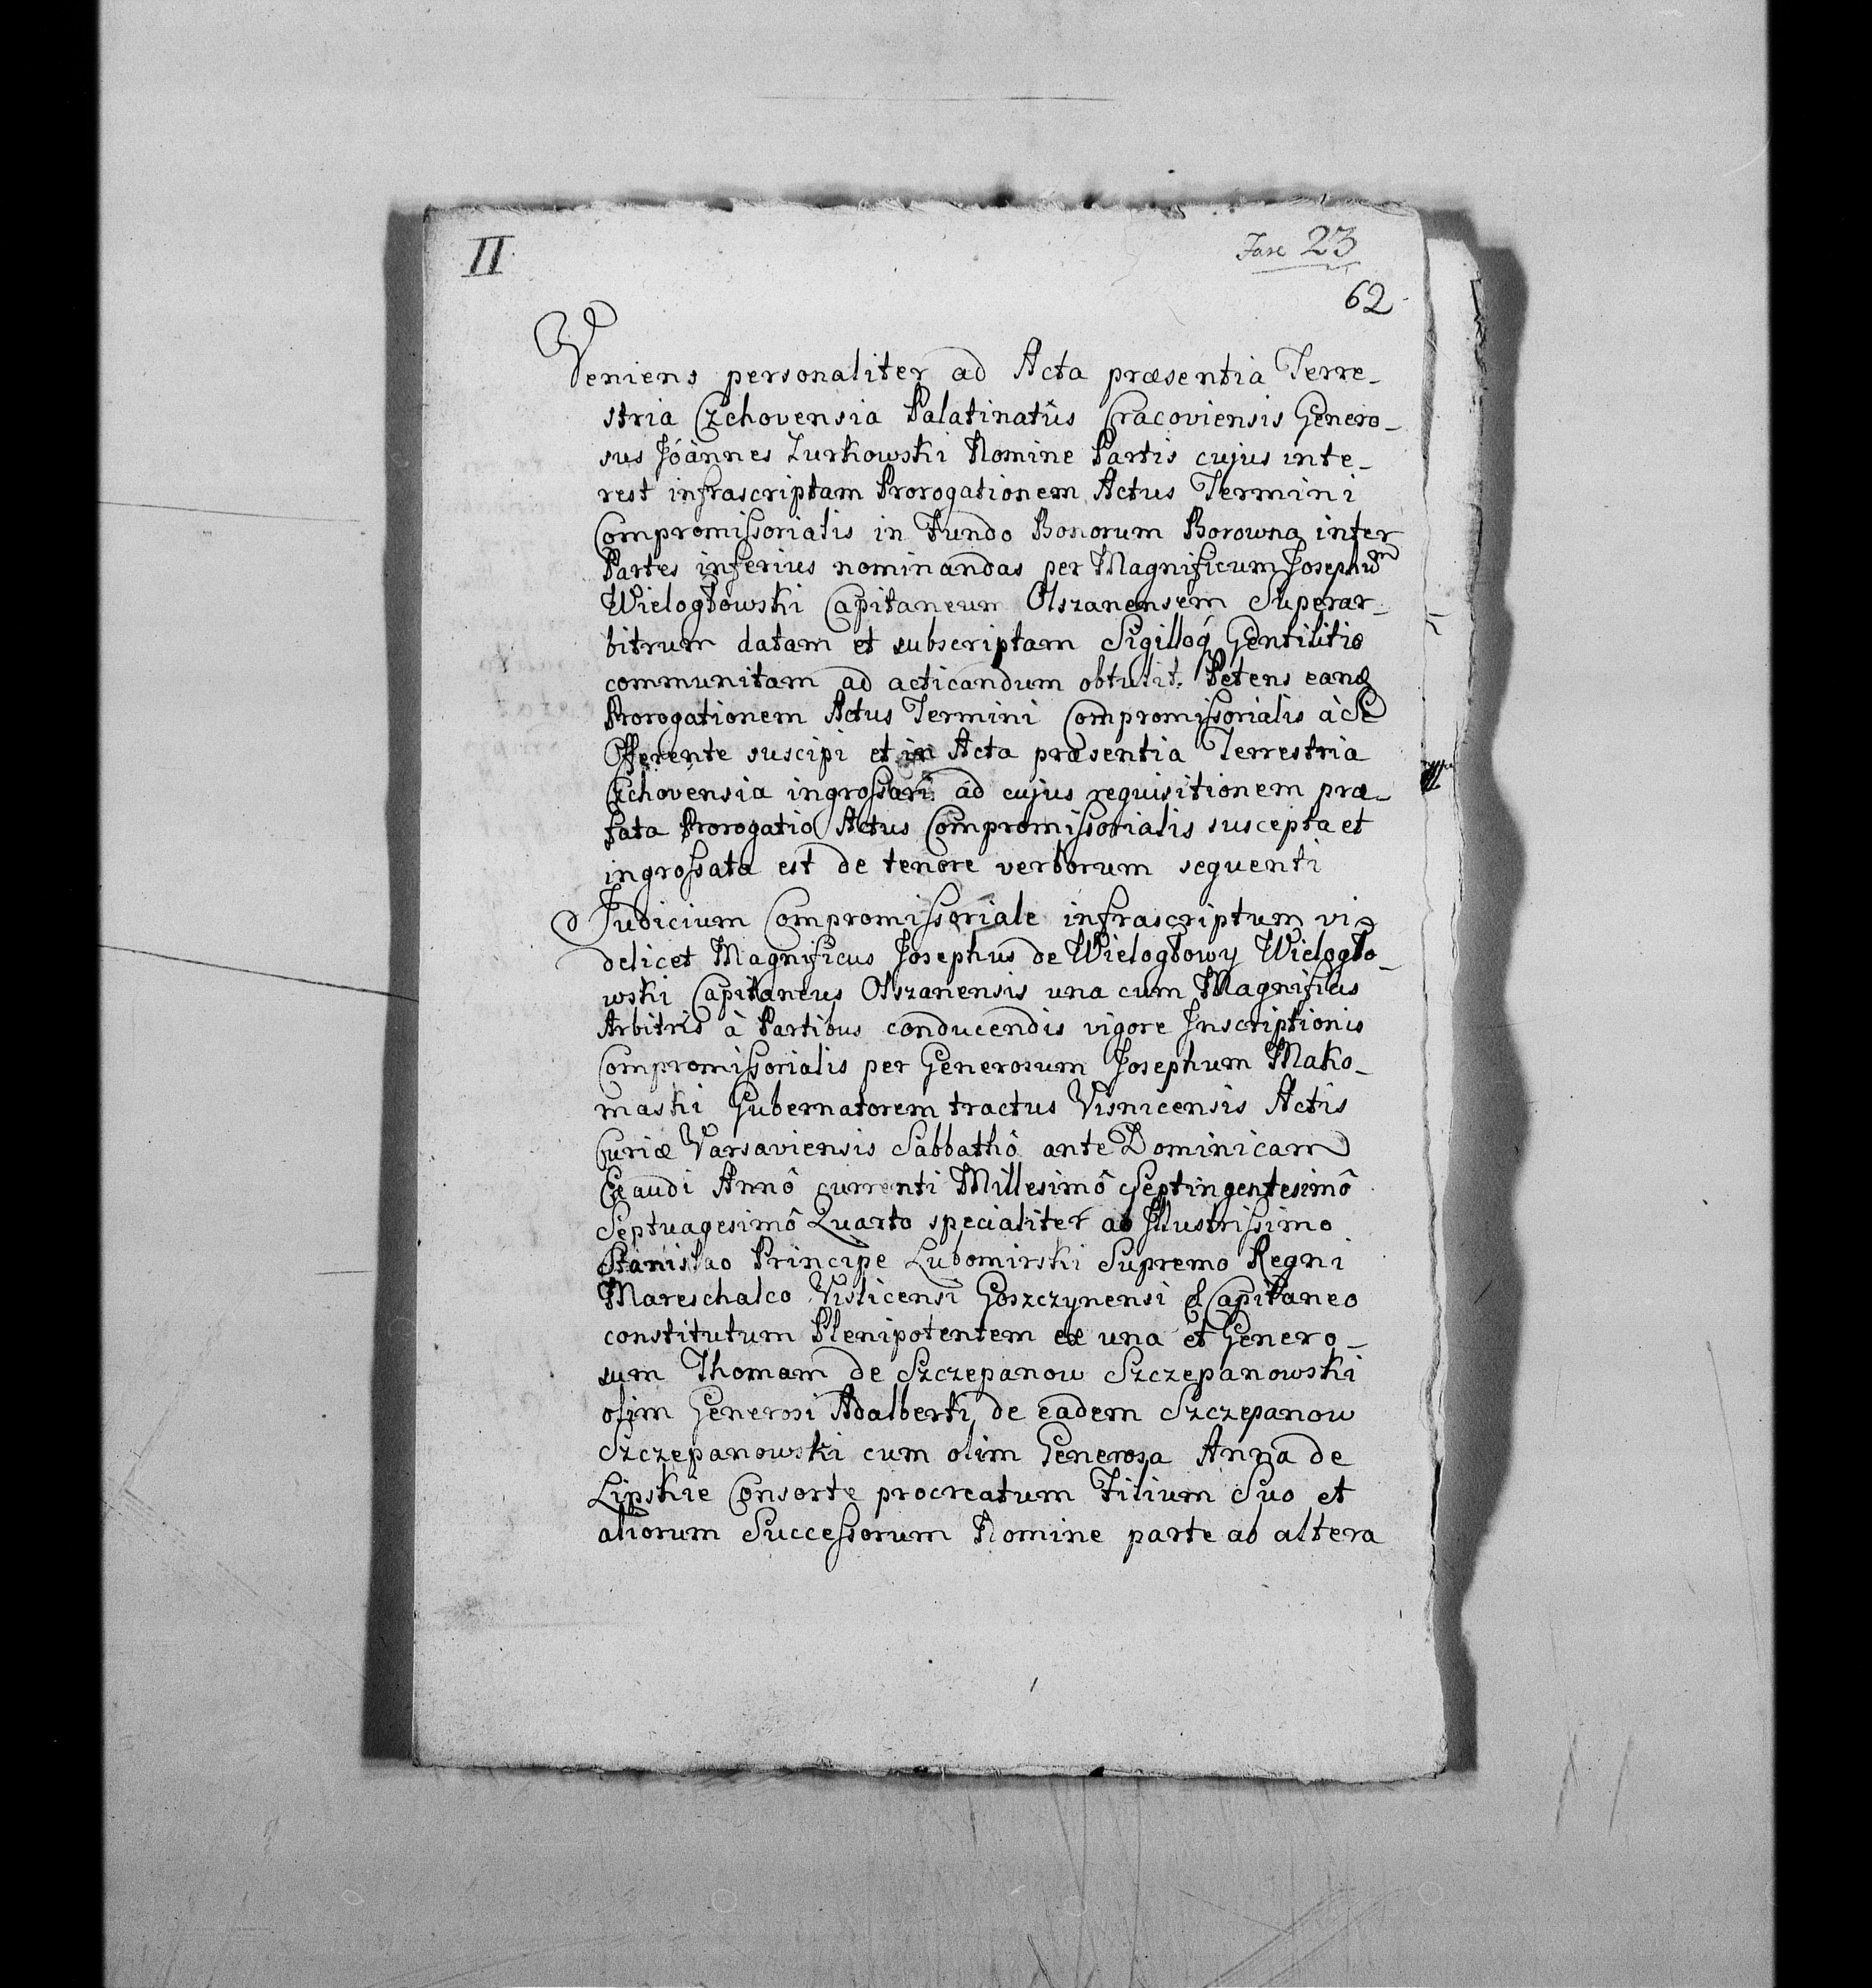 II
Fasc 23
62
Veniens personaliter ad Acta præsentia Terre-
stria Czchovensia Palatinatûs Cracoviensis Genero-
sus Jóànnes Zurkowski Nomine Partis cujus inte-
rest infrascriptam Prorogationem Actus Termini
Compromissorialis in Fundo Bonorum Borowna inter
Partes inferius nominandas per Magnificum Josephum
Wielogłowski Capitaneum Olszanensem Superar-
bitrum datam et subscriptam Sigilloq́ Gentilitio
communitam ad acticandum obtulit. Petens eandē
Prorogationem Actus Termini Compromissorialis à Se
Offerente suscipi et in Acta præsentia Terrestria
Czchovensia ingrossari ad cujus requisitionem præ-
fata Prorogatio Actus Compromissorialis suscepta et
ingrossata est de tenore verborum sequenti
Judicium Compromissoriale infrascriptum vi-
delicet Magnificus Josephus de Wielogłowy Wielogło-
wski Capitaneus Olszanensis una cum Magnificis
Arbitris à Partibus conducendis vigore Inscriptionis
Compromissorialis per Generosum Josephum Mako-
maski Gubernatorem tractus Visnicensis Actis
Curiæ Varsaviensis Sabbathô ante Dominicam
Exaudi Annô currenti Millesimô Septingentesimô
Septuagesimô Quarto specialiter ab Illustrissimo
Stanislao Principe Lubomirski Supremo Regni
Mareschalco Vislicensi Goszczynensi & Capitaneo
constitutum Plenipotentem ex una et Genero-
sum Thomam de Szczepanow Szczepanowski
olim Generosi Adalberti de eadem Szczepanow
Szczepanowski cum olim Generosa Anna de
Lipskie Consorte procreatum Filium Suo et
aliorum Successorum Nomine parte ab altera